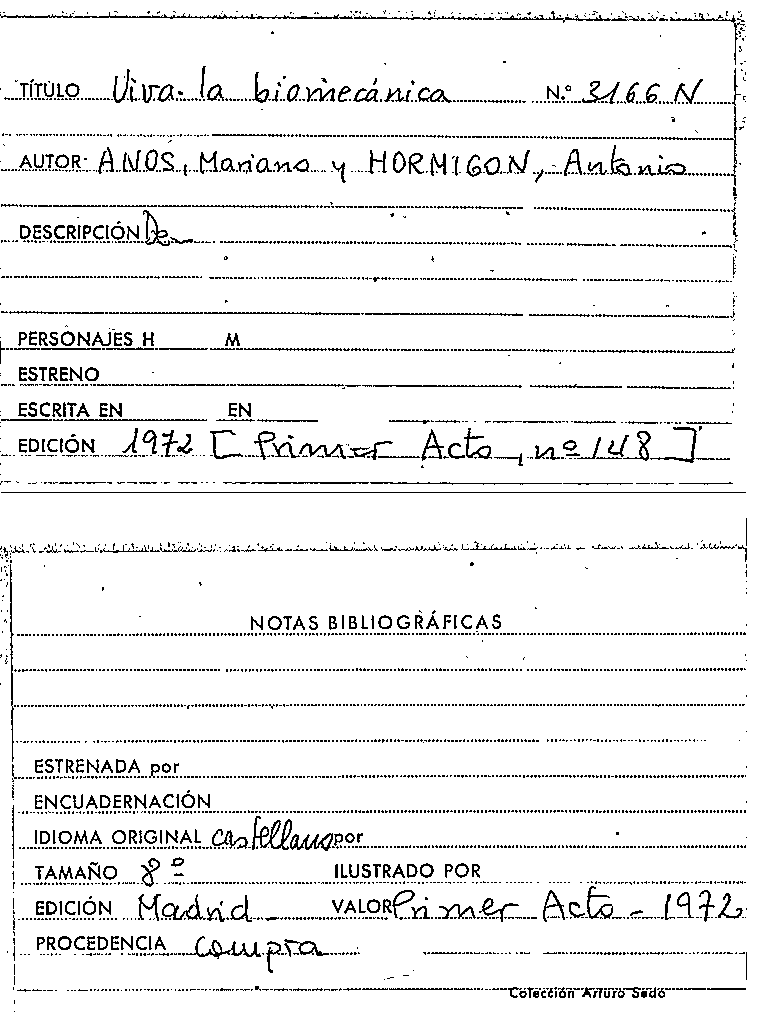 TÍTULO Viva la biomecánica N.º 3166 N
AUTOR ANOS, Mariano y HORMIGON, Antonio
DESCRIPCIÓN De
PERSONAJES H M
ESTRENO
ESCRITA EN EN
EDICIÓN 1972 [Primer Acto, nº 148]
NOTAS BIBLIOGRÁFICAS
ESTRENADA por
ENCUADERNACIÓN
IDIOMA ORIGINAL castellano por
TAMAÑO 8º ILUSTRADO POR
EDICIÓN Madrid VALOR Primer Acto - 1972
PROCEDENCIA compra
Colección Arturo Sedó